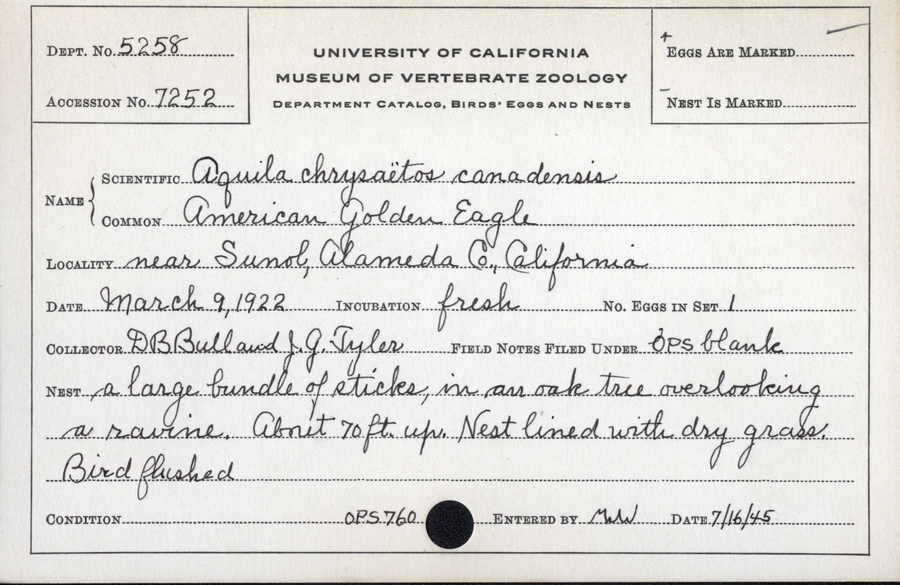 DEPT. No. 5258
UNIVERSITY OF CALIFORNIA
EGGS ARE MARKED
MUSEUM OF VERTEBRATE ZOOLOGY
ACCESSION No. 7252
DEPARTMENT CATALOG, BIRDS' EGGS AND NESTS
NEST IS MARKED
NAME
SCIENTIFIC Aquila chrysaëtos canadensis
COMMON American Golden Eagle
LOCALITY near Sunol, Alameda Co., California
DATE March 9, 1922 INCUBATION fresh No. EGGS IN SET 1
COLLECTOR DB Bull and J.G. Tyler FIELD NOTES FILED UNDER OPS blank
NEST a large bundle of sticks, in an oak tree overlooking
a ravine. About 70 ft. up. Nest lined with dry grass.
Bird flushed
CONDITION OPS 760 ENTERED BY DATE 7/16/45